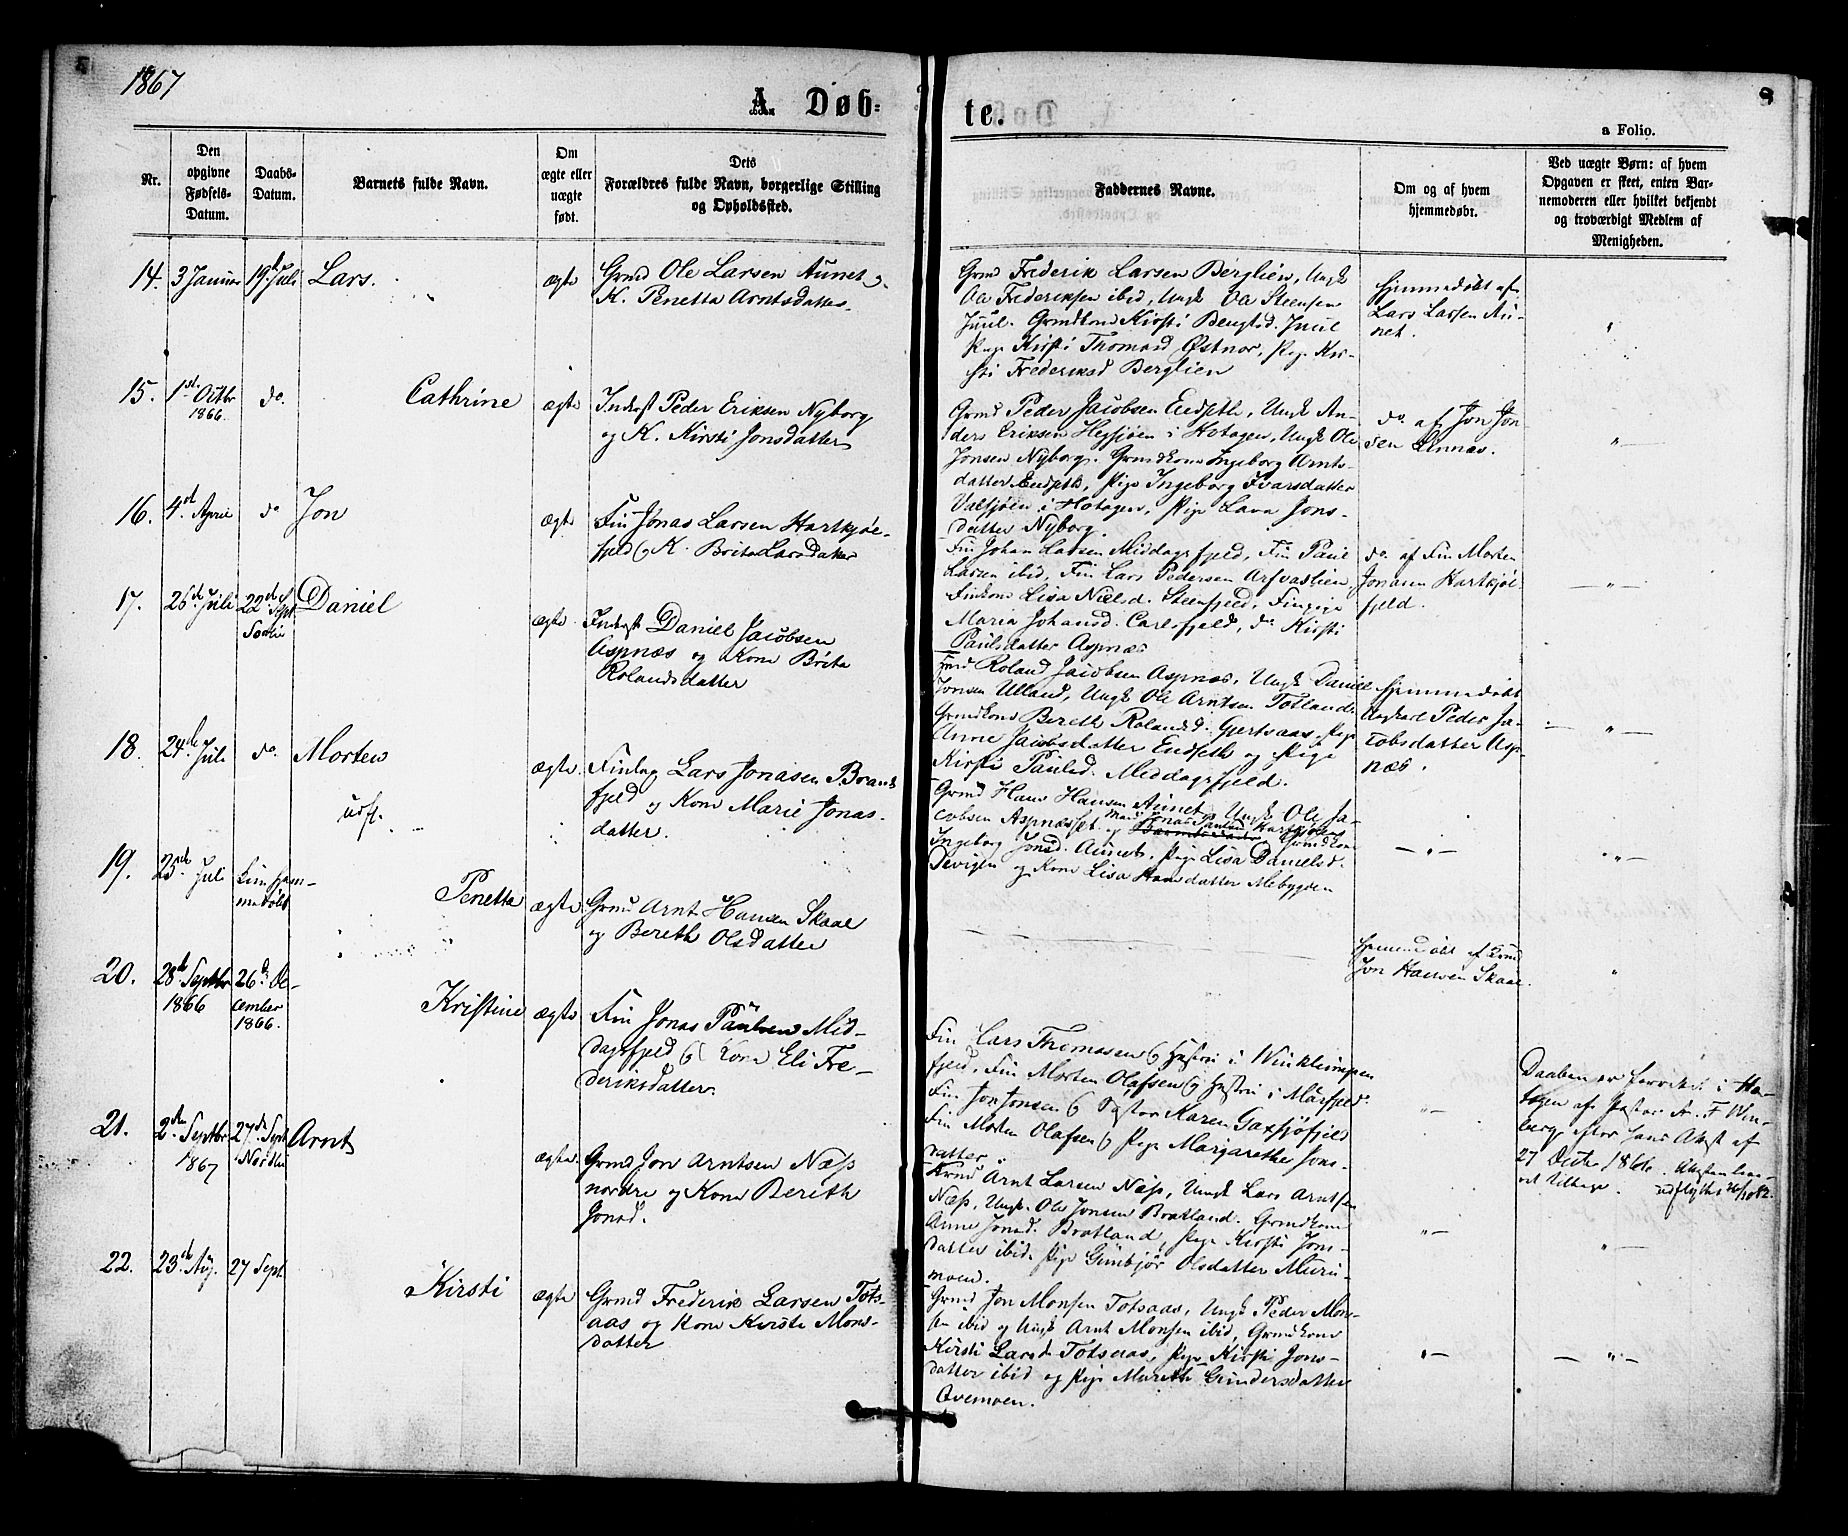 1867
8
A. Døb-
te.
a Folio.
Nr.
Den
opgivne
Fødsels-
Datum.
Daabs-
Datum.
Barnets fulde Navn.
Om
ægte eller
uægte
født.
Dets
Forældres fulde Navn, borgerlige Stilling
og Opholdssted.
Faddernes Navne.
Om og af hvem
hjemmedøbt.
Ved uægte Børn: af hvem
Opgaven er skeet, enten Bar-
nemoderen eller hvilket bekjendt
og troværdigt Medlem af
Menigheden.
14. 3 Januar 19de Juli Lars. ægte
Grmd Ole Larsen Aunet og
K. Penetta Arntsdatter.
Grmd Frederik Larsen Berglien, Ungk
Ole Frederiksen ibid, Ungk Ola Steensen
Juul. Grmdkone Kirsti Bengtsd. Juul
Pige Kirsti Thomasd Østnor, Pige Kir-
sti Frederiksd Berglien
Hjemmedøbt af
Lars Larsen Au-
net.
"
15. 1st Octbr
1866.
do. Cathrine ægte
Inderst Peder Eriksen Nyborg
og K. Kirsti Jonsdatter
Grmd Peder Jacobsen Eidseth, Ungk An-
ders Eriksen Hegsjøen i Hotagen, Ungk Ole
Jonsen Nyborg. Grmdkone Ingeborg Arnts-
datter Eidseth, Pige Ingeborg Ivarsdatter
Valsjøen i Hotagen, Pige Lava Jons-
datter Nyborg.
do. af Jon Jon-
sen Linnæs.
"
16. 4de April do Jon ægte
Fin Jonas Larsen Hartkjøl-
fjeld og K. Brita Larsdatter
Fin Johan Larsen Middagsfjeld, Fin Paul
Larsen ibid, Fin Lars Pedersen Arfvaslien
Finkone Lisa Nielsd. Steenfjeld, Finpige
Maria Johansd. Carlsfjeld, do Kirsti
Paulsdatter Aspnæs
do. af Fin Morten
Jonasen Hartkjøl-
fjeld.
"
17. 26de Juli 22de Sept
Daniel ægte
Inderst Daniel Jacobsen
Aspnæs og Kone Brita
Rolandsdatter
Roland Jacobsen Aspnæs, Ungk Daniel
Jonsen Ulland, Ungk Ole Arntsen Totland
Grmdkone Bereth Rolandsd. Gjertsaas, Pige
Anne Jacobsdatter Eidseth og Pige
Kirsti Paulsd. Middagsfjeld.
Hjemmedøbt
Ungkarl Peder Ja-
cobsdatter Asp-
næs.
"
18. 24de Juli do. Morten ægte
udfl.
Finlap Lars Jonasen Brand-
fjeld og Kone Marie Jonas-
datter.
Grmd Hans Hansen Aunet, Ungk Ole Ja-
cobsen Aspnæsset og Hartkjølens
Ingeborg Jonsd. Aunet, Pige Lisa Danielsd.
Devigen og Kone Lisa Hansdatter Mebygden
"
19. 25de Juli
Kun hjem-
medøbt
Penetta ægte
Grmd Arnt Hansen Skaale
og Bereth Olsdatter
Hjemmedøbt af Grmd
Jon Hansen Skaale.
"
20. 28de Septbr
1866
26de De-
cember
1866.
Kristine ægte
Fin Jonas Paulsen Mid-
dagsfjeld og Kone Eli Fre-
deriksdatter.
Fin Lars Thomassen og Hustru i
fjeld, Fin Morten Olafsen og Hustru i Mærfjeld.
Fin Jon Jonsen og Søster Karen Gaxsjöfjeld
Fin Morten Olafsen og Pige Margarethe Jons-
datter.
"
Daaben er forrettet i Ho-
tagen af Pastor A. F Win-
berg efter hans Attest af
27 Decbr 1866. Attesten le-
vert tilbage. udflyttet
21. 2den Septbr
1867
27de Sept
Nordli
Arnt ægte
Grmd Jon Arntsen Næss
nordre og Kone Bereth
Jonsd.
Grmd Arnt Larsen Næss, Ungk Lars Arntsen
Næss, Ungk. Ole Jonsen Bratland. Grmdkone
Anne Jonsd. Bratland, Pige Kirsti Jons-
datter ibid. Pige Gunbjør Olsdatter Muru-
moen.
"
22. 23de Aug. 27 Sept. Kirsti ægte
Grmd Frederik Larsen Tots-
aas og Kone Kirsti Mons-
datter
Grmd Jon Monsen Totsaas, Ungk Peder Mon-
sen ibid og Ungk Arnt Monsen ibid, Grmdkone
Kirsti Larsd Totsaas, Pige Kirsti Jons-
datter ibid og Pige Mareth Gundersdatter
Qvemoen.
"